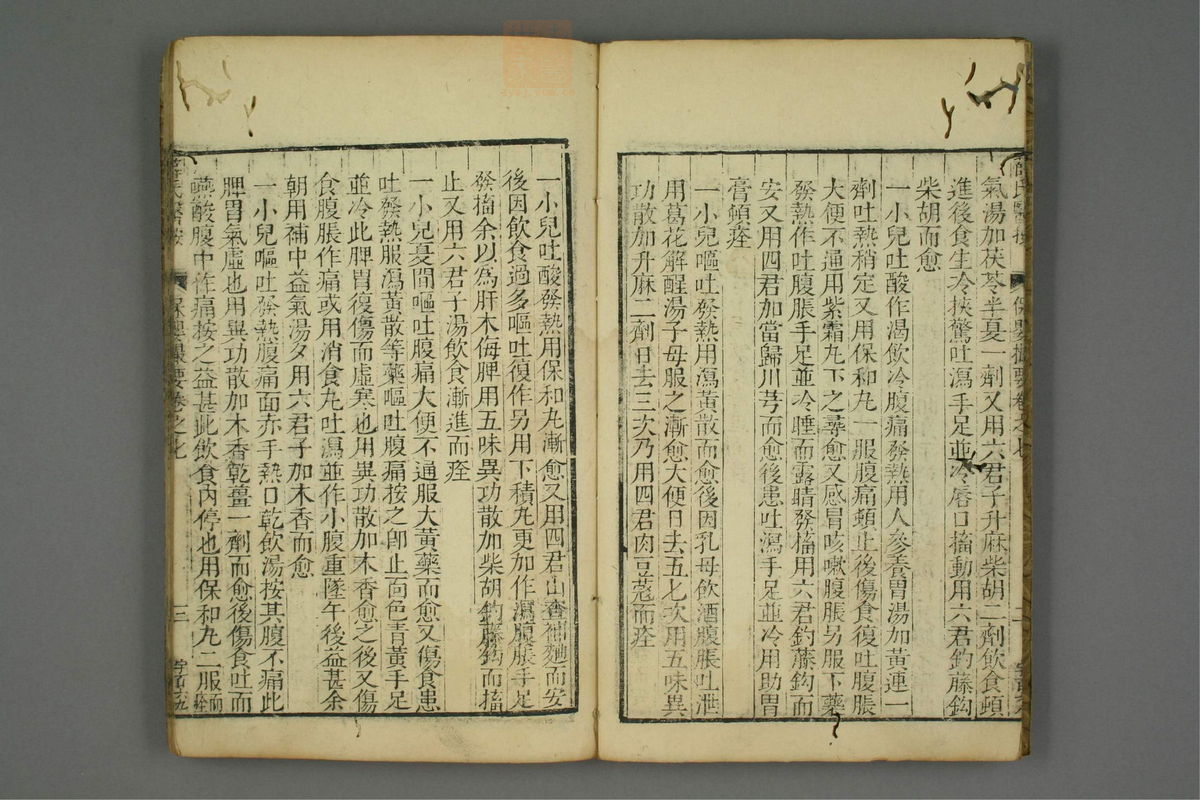 氣湯加茯苓半夏一劑又用六君子升麻柴胡二劑飲食頓
進後食生冷挾驚吐瀉手足並冷唇口搐動用六君釣藤鈎
柴胡而愈
一小兒吐酸作渴飲冷腹痛發熱用人參養胃湯加黃連一
劑吐熱稍定又用保和丸一服腹痛頓止後傷食復吐腹脹
大便不通用紫霜丸下之尋愈又感冒咳嗽腹脹另服下藥
發熱作吐腹脹手足並冷睡而露睛發搐用六君釣藤鈎而
安又用四君加當歸川芎而愈後患吐瀉手足並冷用助胃
膏頓痊
一小兒嘔吐發熱用瀉黃散而愈後因乳母飲酒腹脹吐泄
用葛花解酲湯子母服之漸愈大便日去五七次用五味異
功散加升麻二劑日去三次乃用四君肉豆蔻而痊
保嬰撮要卷之七
二
一小兒吐酸發熱用保和丸漸愈又用四君山查神麯而安
後因飲食過多嘔吐復作另用下積丸更加作瀉腹脹手足
發搐余以為肝木侮脾用五味異功散加柴胡釣藤鈎而搐
止又用六君子湯飲食漸進而痊
一小兒憂間嘔吐腹痛大便不通服大黃藥而愈又傷食患
吐發熱服瀉黃散等藥嘔吐腹痛按之卽止面色青黃手足
並冷此脾胃復傷而虛寒也用異功散加木香愈之後又傷
食腹脹作痛或用消食丸吐瀉並作小腹重墜午後益甚余
朝用補中益氣湯夕用六君子加木香而愈
一小兒嘔吐發熱腹痛面赤手熱口乾飲湯按其腹不痛此
脾胃氣虛也用異功散加木香乾薑一劑而愈後傷食吐而
嚥酸腹中作痛按之益甚此飲食內停也用保和丸二服而痊
薛氏醫按
保嬰撮要卷之七
三